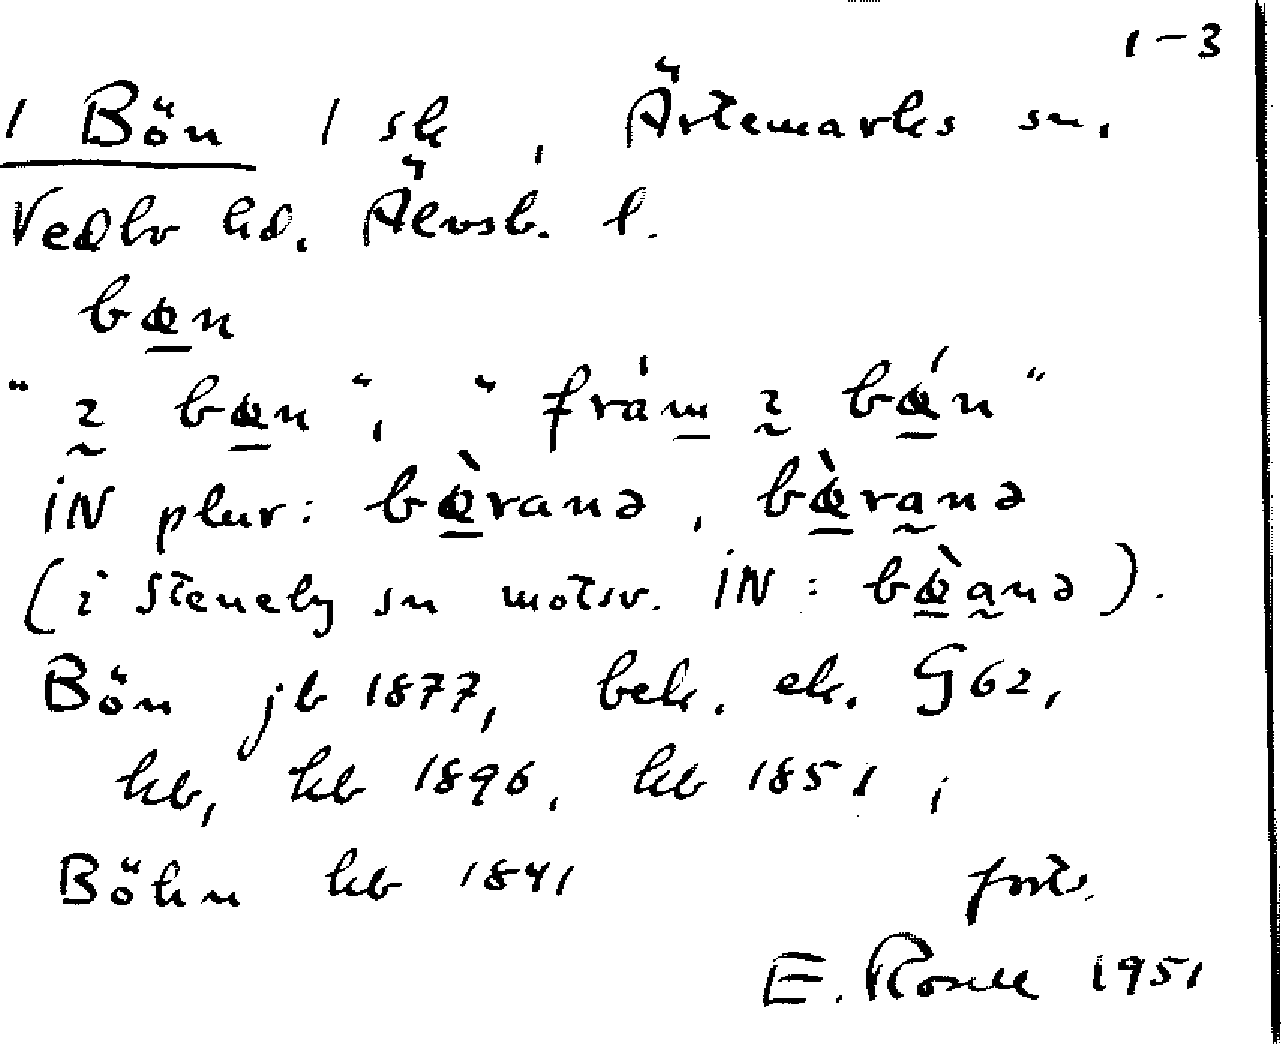 1-3
1 Bön 1 sk, Ärtemarks sn,
Vedbo hd, Älvsb. l.
bœ̠n
"ı̰ bœ̠n", "frȧm̠ ı̰ bœ̠́n"
iN plur: bœ̠̀ranə, bœ̠̀ra̰nə
(i Steneby sn motsv. iN: bœ̠̀a̰nə).
Bön jb 1877, bek. ek. G62,
kb, kb 1896, kb 1851;
Böhn kb 1841 forts.
E. Rosell 1951